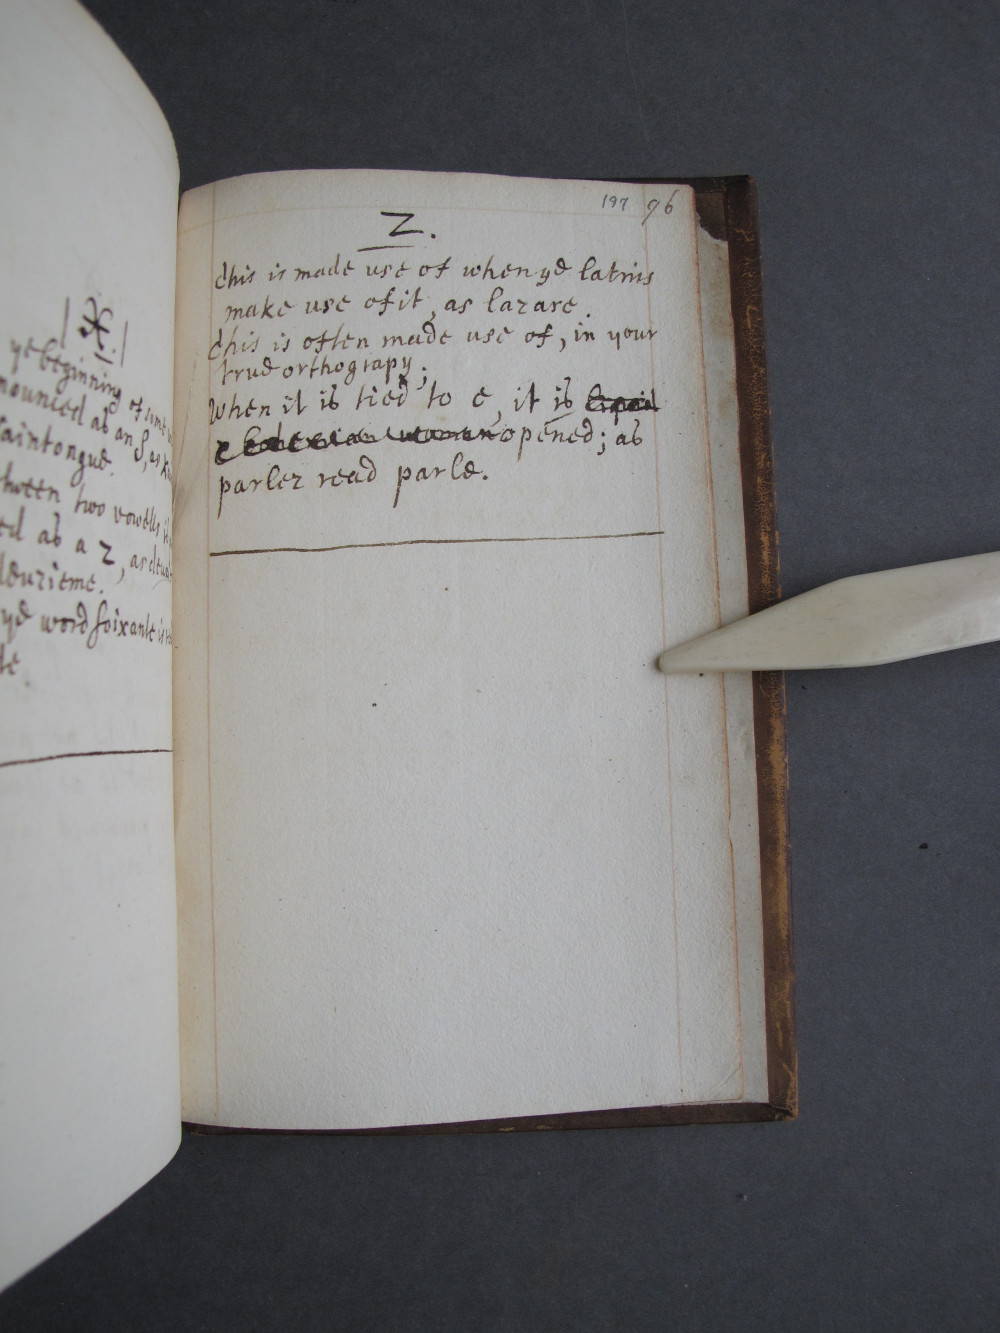 X.
ye beginning of some
nounced as an S, as
Saintongue.
tween two vowells it
ed as a z, as
deuxieme.
ye word soixante is
te
197 96
Z.
this is made use of when ye latins
make use of it, as lazare.
this is often made use of, in your
true orthograpy;
When it is tied to e, it is
opened; as
parlez read parle.